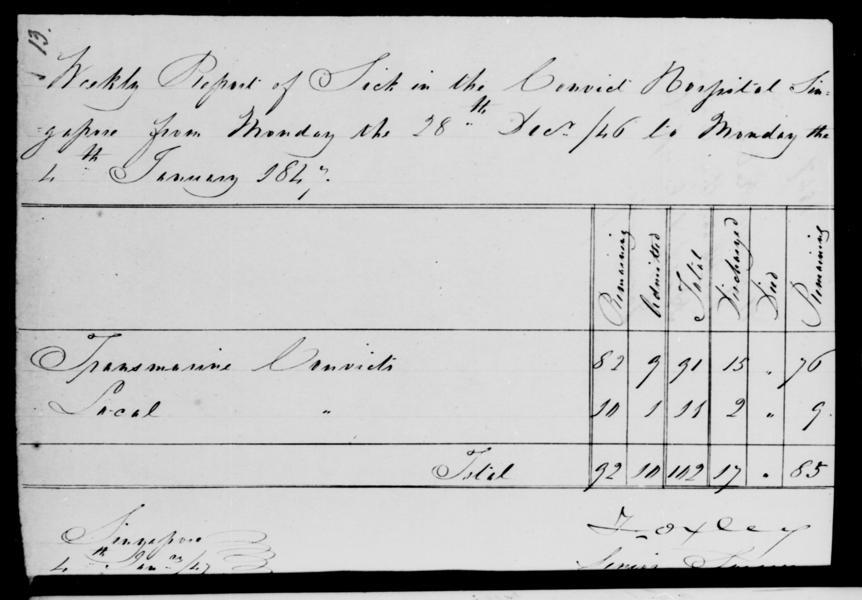 13.
Weekly Report of Sick in the Convict Hospital Sin-
-gapore from Monday the 28th Decr /46 to Monday the
4th January 1847.
Remaining Admitted Total Discharged Died Remaining
Transmarine Convicts 82 9 91 15 " 76
Local " 10 1 11 2 " 9
Total 92 10 102 17 " 85
Singapore
4th Jany /47
T. Oxley
Senior